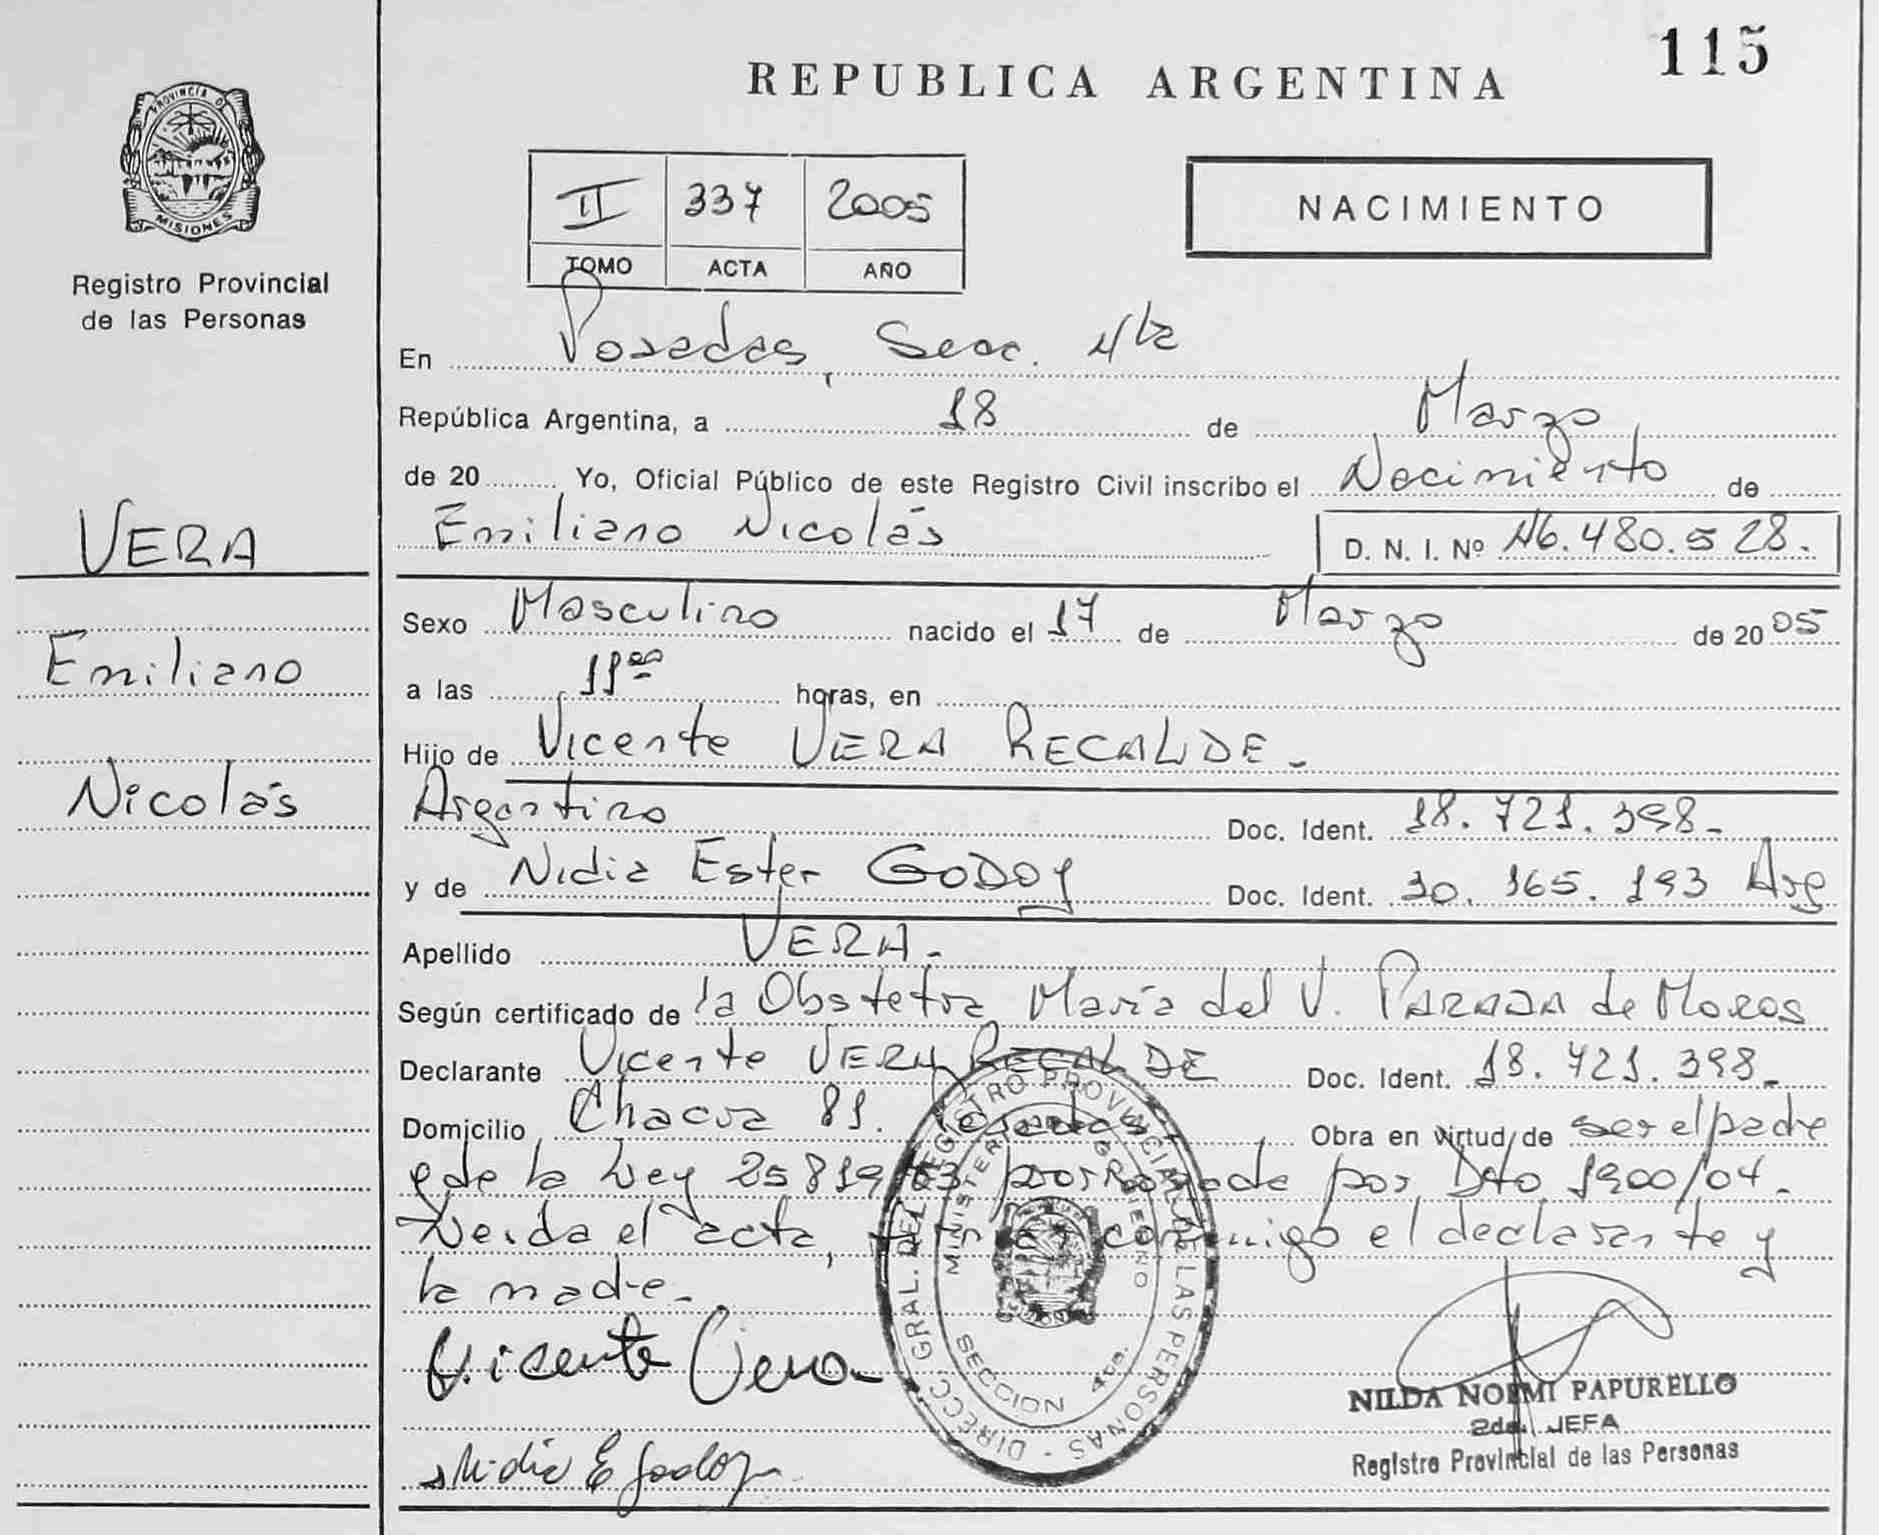 115
REPUBLICA ARGENTINA
PROVINCIA D
MISIONES
Registro Provincial
de las Personas
II 337 2005
TOMO ACTA AÑO
NACIMIENTO
En Posadas, Secc. 4ta
República Argentina, a 18 de Marzo
de 20 Yo, Oficial Público de este Registro Civil inscribo el Nacimiento de
Emiliano Nicolás D. N. I. Nº 46.480.528.
VERA
Emiliano
Nicolás
Sexo Masculino nacido el 17 de Marzo de 2005
a las 11 00 horas, en
Hijo de Vicente VERA RECALDE.
Argentino Doc. Ident. 18.721.398.
y de Nidia Ester GODOY Doc. Ident. 30.165.193 Arg
Apellido VERA.
Según certificado de la Obstetra María del V. de Moros
Declarante Vicente VERA RECALDE Doc. Ident. 18.721.398.
Domicilio Chacra 81. Posadas Obra en virtud de ser el padre
y de la Ley 25819/03 prorrogada por Dto 1900/04.
Leida el acta, firman conmigo el declarante y
la madre.
Vicente Vera
Nidia E Godoy
DIRECC. GRAL. DEL REGISTRO PROVINCIAL DE LAS PERSONAS
MINISTERIO DE GOBIERNO
SECCION 4ta.
NILDA NOEMI PAPURELLO
2da. JEFA
Registro Provincial de las Personas